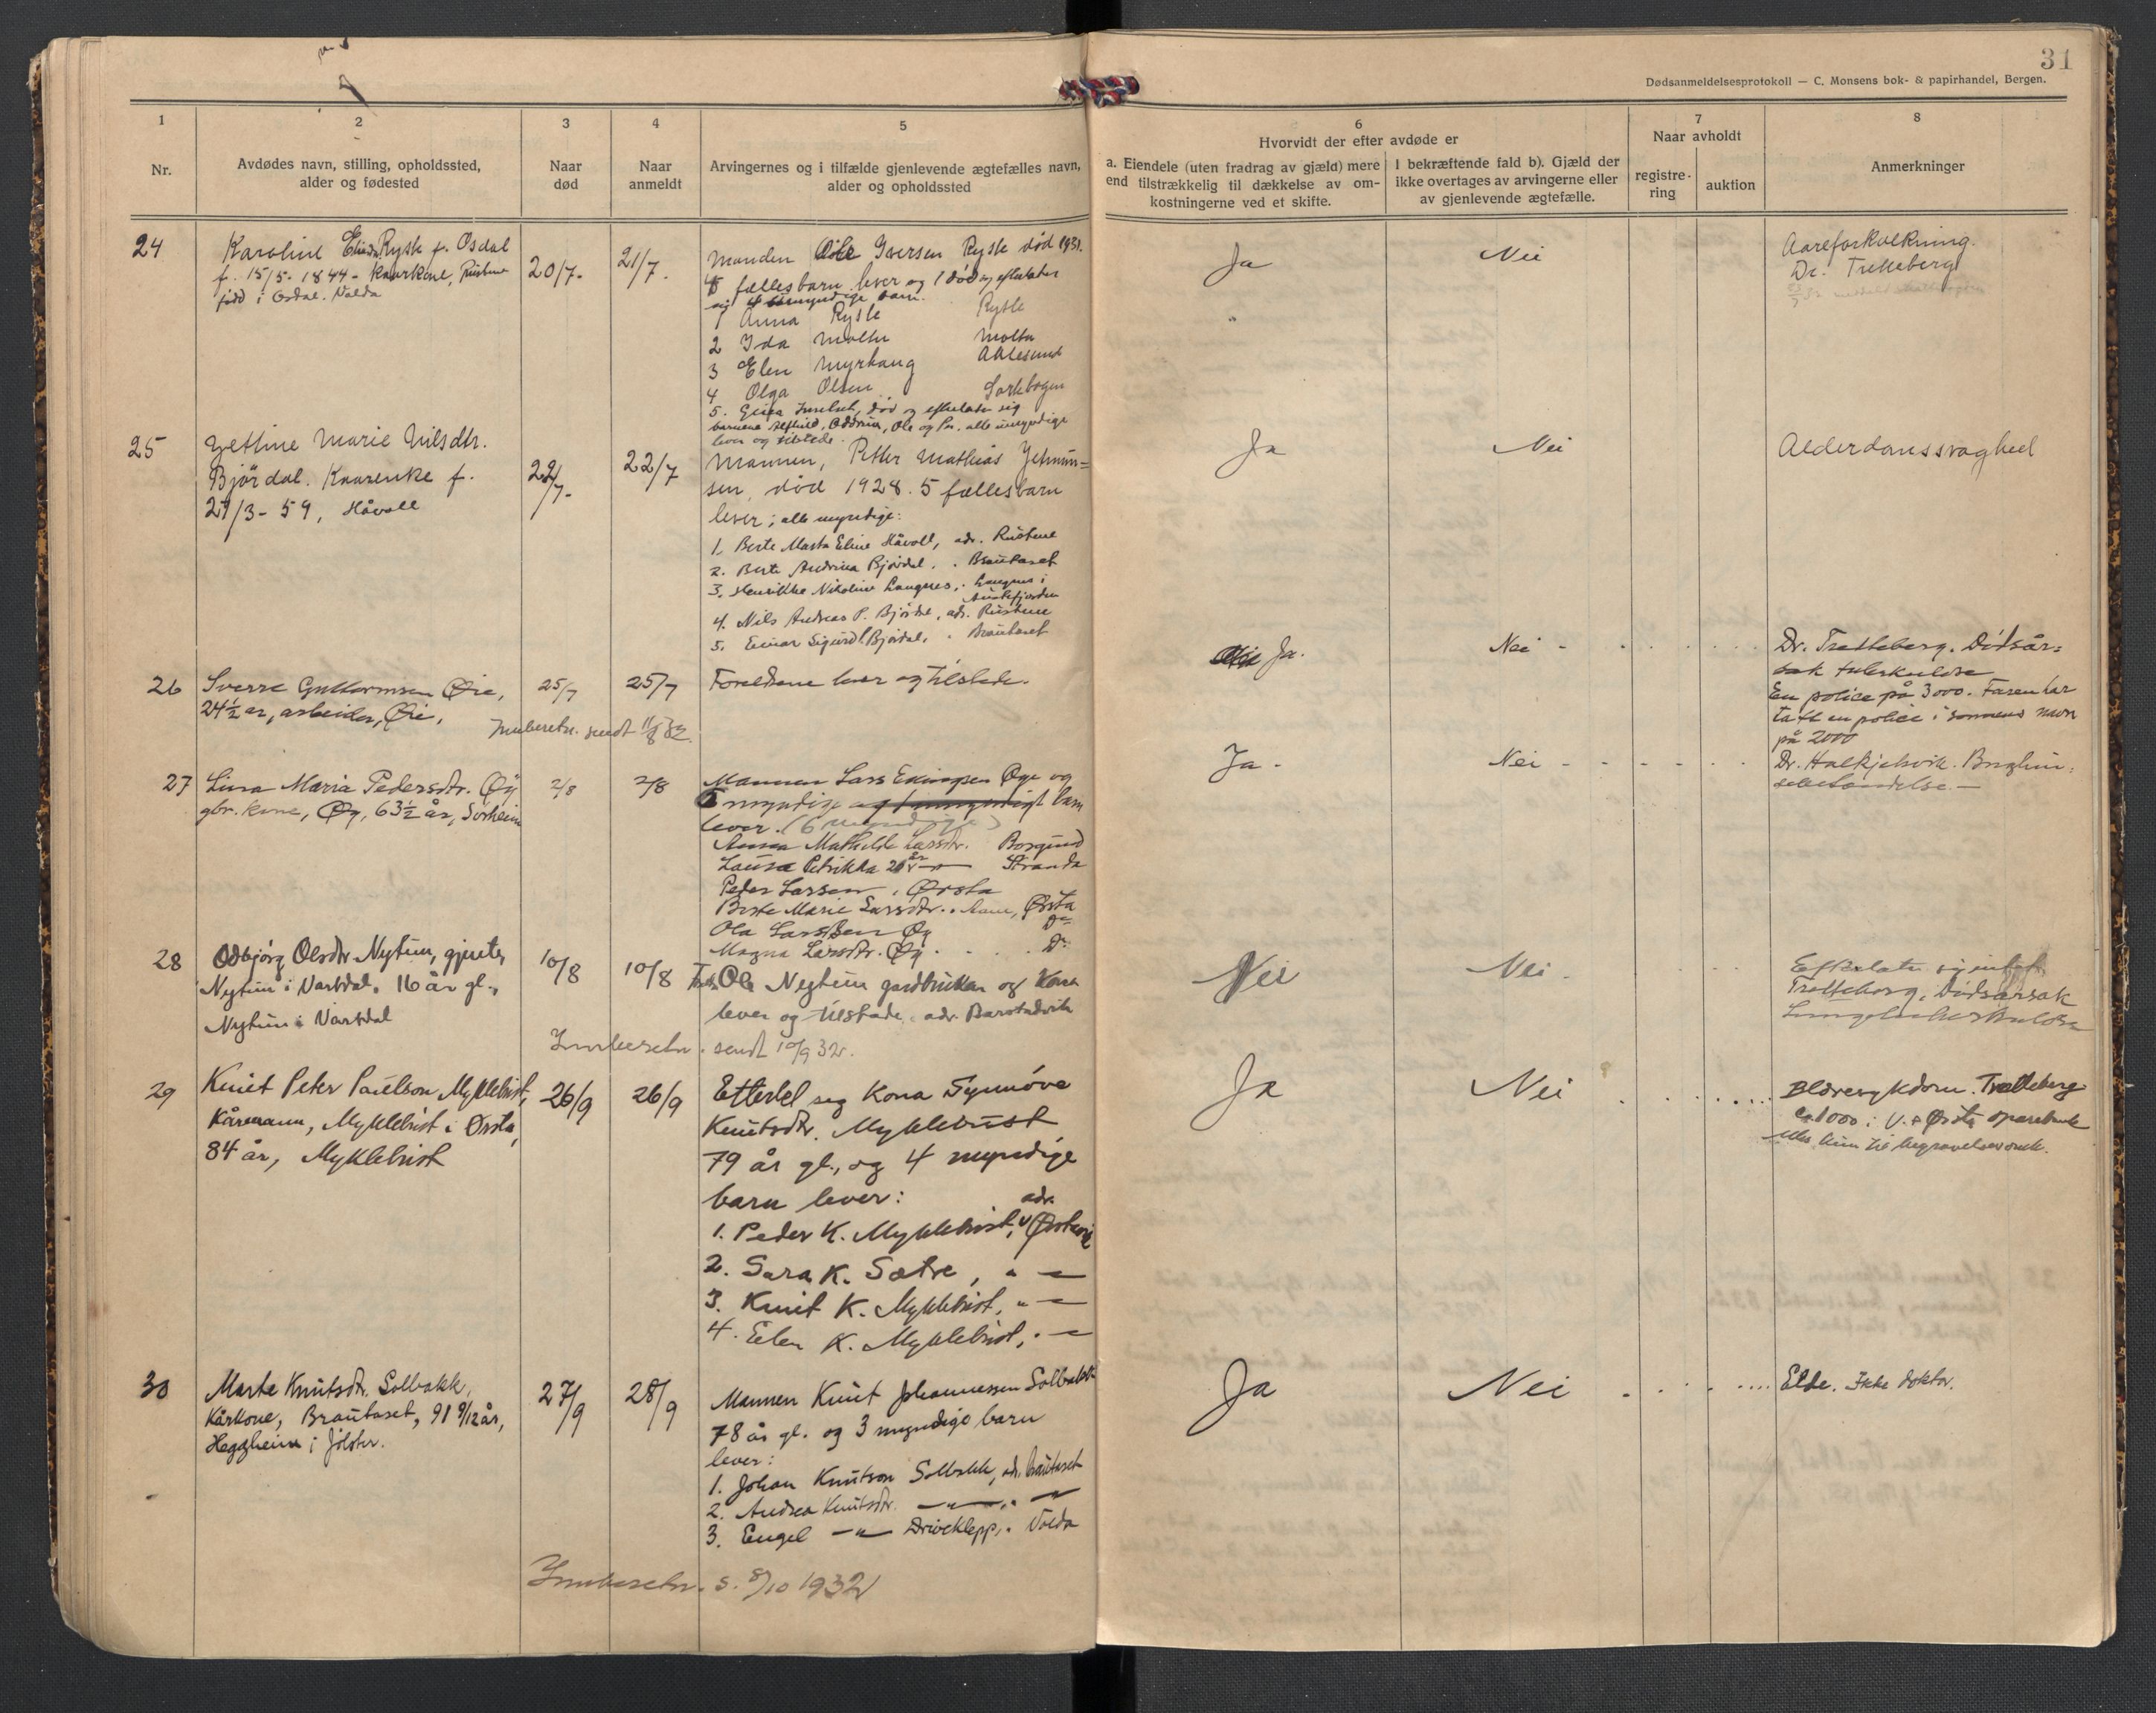 31
Dødsanmeldelsesprotokoll — C. Monsens bok- & papirhandel, Bergen.
1
Nr.
2
Avdødes navn, stilling, opholdssted,
alder og fødested
3
Naar
død
4
Naar
anmeldt
5
Arvingernes og i tilfælde gjenlevende ægtefælles navn,
alder og opholdssted
6
Hvorvidt der efter avdøde er
a. Eiendele (uten fradrag av gjæld) mere
end tilstrækkelig til dækkelse av om-
kostningerne ved et skifte.
I bekræftende fald b). Gjæld der
ikke overtages av arvingerne eller
av gjenlevende ægtefælle.
7
Naar avholdt
registre-
ring
auktion
8
Anmerkninger
24
Karoline Rysle f. Osdal
f. 15/5-1844 - Kaarkone,
født i Osdal. Volda
20/7-
21/7.
Manden Ole Iversen Rysle død 1931.
fællesbarn lever og 1 død og efterlater
sig 4 umyndige barn.
1 Anna Rysle Rysle
2 Ida Moltu Moltu
3 Elen Myrhaug Aalesund
4 Olga Olsen
5. død og efterlater sig
barnene Alfhild, Oddrun, Ole og Per. alle umyndige
lever og tilstede.
Ja
Nei
Aareforkalkning.
Dr. Tretteberg
25
Jettine Marie Nilsdtr.
Bjørdal. Kaarenke f.
27/3-59, Håvoll
22/7-
22/7
Mannen, Petter Mathias Jetmun=
sen, død 1928. 5 fællesbarn
lever; alle myndige:
1. Berte Marta Eline Håvoll, adr. Rustene
2. Berte Andrina Bjørdal. . Brautaset
3. Henrikke Nikoline Langnes, . Langnes i
Austefjorden
4. Nils Andreas P. Bjørdal, adr. Rustene
5. Einar Sigurd P. Bjørdal, . Brautaset
Ja
Nei
Alderdomssvaghed
26
Sverre Guttormsen Øie,
24½ år, arbeider, Øie,
25/7
25/7
Foreldrene lever og tilstede.
Innberetn. sendt 11/8 32.
Ja.
Nei
Dr. Tretteberg. Dødsår=
sak tuberkulose
En police på 3000. Faren har
tatt en police i sønnens navn
på 2000
27
Lina Maria Pedersdtr. Øy
gbr. kone, Øy, 63½ år, Sørheim
2/8
2/8
Mannen Lars Øye og
myndige og 1 umyndigt barn
lever. (6 myndige)
Anna Mathilde Larsdtr. Borgund
Laura Petrikka 20 år Stranda
Peder Larsen, Ørsta
Berte Marie Larsdtr. . Aam, Ørsta
Ola Larssen Øy Do
Magna Larsdtr. Øy . . . Do
Ja.
Nei
Dr. Halkjelsvik.
28
Odbjørg Olsdtr. Nytun, gjente,
Nytun i Vartdal. 16 år gl.,
Nytun i Vartdal
10/8
10/8
Ola Nytun gardbruker og Kona
lever og tilstade. adr. Barstadvik
Innberetn. sendt 10/9 32.
Nei
Nei.
Efterlater sig intet
Tretteberg, Dødsårsak
Lungetuberkulose
29
Knut Peter Paulson Myklebust,
Kårmann, Myklebust i Ørsta,
84 år, Myklebust
26/9
26/9
Etterlet seg Kona Synnøve
Knutsdtr. Myklebust
79 år gl., og 4 myndige
barn lever:
adr.
1. Peder K. Myklebust, Ørstavik
2. Sara K. Sætre, " —
3. Knut K. Myklebust, " —
4. Elen K. Myklebust, . —
Ja
Nei
Blæresykdom. Tretteberg
ca 1000 i V. & Ørsta sparebank
30
Marte Knutsdtr. Solbakk,
Kårkone, Brautaset, 91 9/12 år,
Heggheim i Jølster.
27/9
28/9
Mannen Knut Johannessen Solbakk
78 år gl. og 3 myndige barn
lever:
1. Johan Knutson Solbakk, adr. Brautaset
2. Andrea Knutsdtr. —"—, " —"
3. Engel —"— Driveklepp, . Volda
Innberetn. s. 8/10 1932
Ja
Nei
Elde. Ikke doktor.